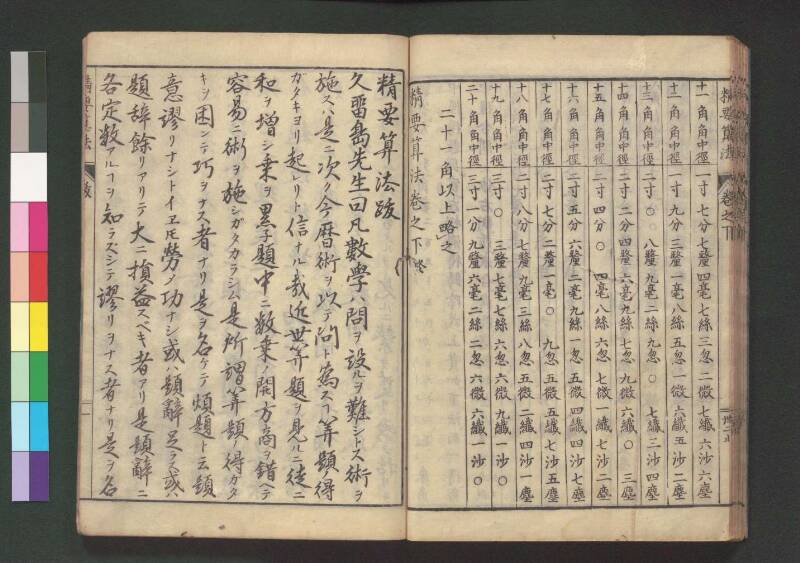 精要算法 卷之下
十一角角中徑 一寸七分七釐四毫七絲三忽二微七纖六沙六塵
十二角角中徑 一寸九分三釐一毫八絲五忽一微六纖五沙二塵
十三角角中徑 二寸〇八釐九毫二絲九忽〇七纖三沙四塵
十四角角中徑 二寸二分四釐六毫九絲七忽九微六纖〇三塵
十五角角中徑 二寸四分〇四毫八絲六忽七微一纖七沙二塵
十六角角中徑 二寸五分六釐二毫九絲一忽五微四纖四沙七塵
十七角角中徑 二寸七分二釐一毫〇九忽五微五纖七沙五塵
十八角角中徑 二寸八分七釐九毫三絲八忽五微二纖四沙一塵
十九角角中徑 三寸〇三釐七毫七絲六忽六微九纖一沙〇
二十角角中徑 三寸一分九釐六毫二絲二忽六微六纖一沙〇
二十一角以上略之
精要算法卷之下終
精要算法跋
久留島先生曰凡數學ハ問ヲ設ルヲ難シトス術ヲ
施スハ是ニ次ク今暦術ヲ以テ問ト為スヿ算題ノ得
ガタキヨリ起レリト信ナル哉近世算題ヲ見ルニ徒ニ
和ヲ増シ乗ヲ累子題中ニ数乗ノ開方商ヲ錯ヘテ
容易ニ術ヲ施シガタカラシム是所謂算題ノ得ガタ
キニ困ンテ巧ヲナス者ナリ是ヲ名ケテ煩題ト云題
意謬リナシトイヱ𪜈勞ノ功ナシ或ハ題辭足ラス或ハ
題辞餘リアリテ大ニ損益スベキ者アリ是題辭ニ
各定数アルヿヲ知ラズシテ謬リヲナス者ナリ是ヲ名
精要算法 跋